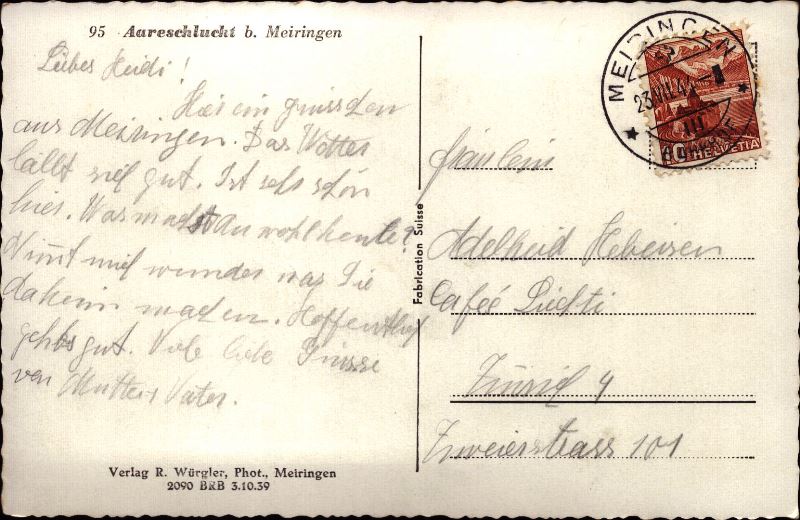 95 Aareschlucht b. Meiringen
Liebes Heidi!
Hier ein Grüsschen
aus Meiringen. Das Wetter
lässt sich gut. Ist sehr schön
hier. Was machst du wohl heute?
Nimmt mich wunder was Sie
daheim machen. Hoffentlich
gehts gut. Viele liebe Grüsse
von Mutter, Vater.
Verlag R. Würgler, Phot., Meiringen
2090 BRB 3.10.39
Fabrication Suisse
MEIRINGEN
23.VII.4
10 HELVETIA
Fräulein
Adelheid Hebeisen
Café Liechti
Zürich 4
Zweierstrass 101